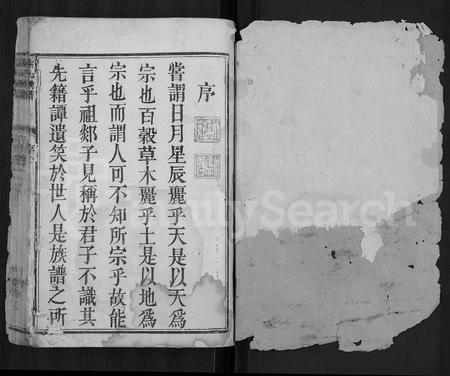 序
嘗謂日月星辰麗乎天是以天爲
宗也百穀草木麗乎土是以地爲
宗也而謂人可不知所宗乎故能
言乎祖郯子見稱於君子不識其
先籍譚遺笑於世人是族譜之所
FamilySearch